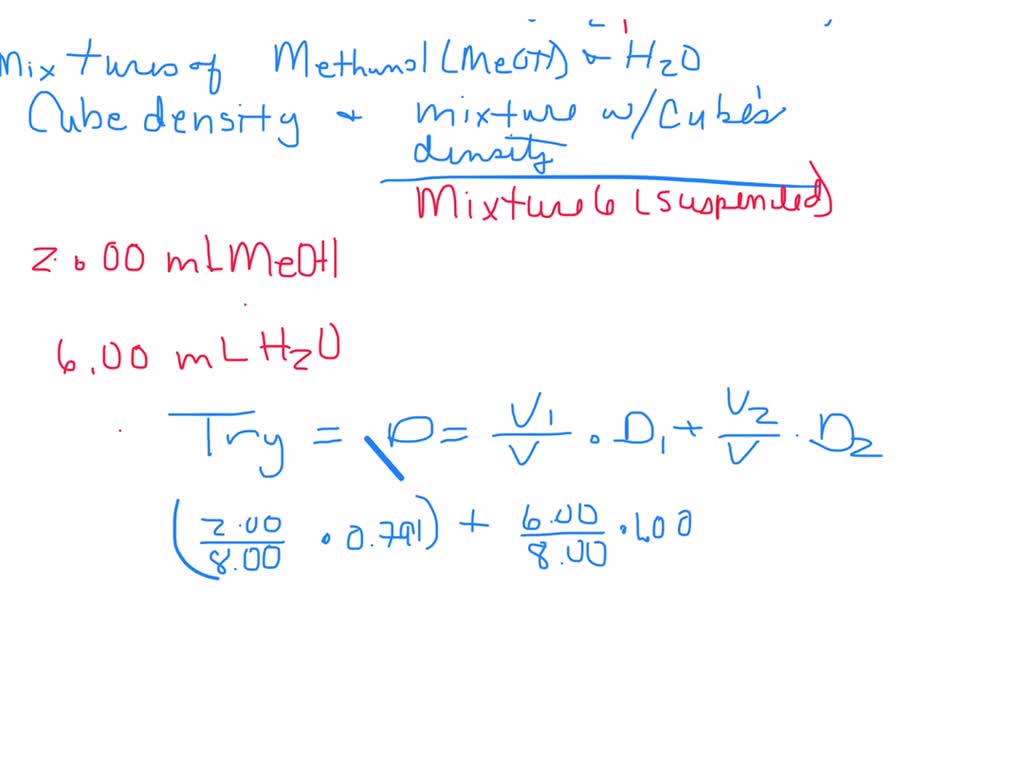 Mixtures of Methanol (MeOH) & H2O
Cube density & mixture w/ Cube's
density
Mixture 6 (suspended)
2.00 mL MeOH
6.00 mL H2O
Try = D = V1/V . D1 + V2/V . D2
(2.00/8.00 . 0.791) + 6.00/8.00 . 1.00